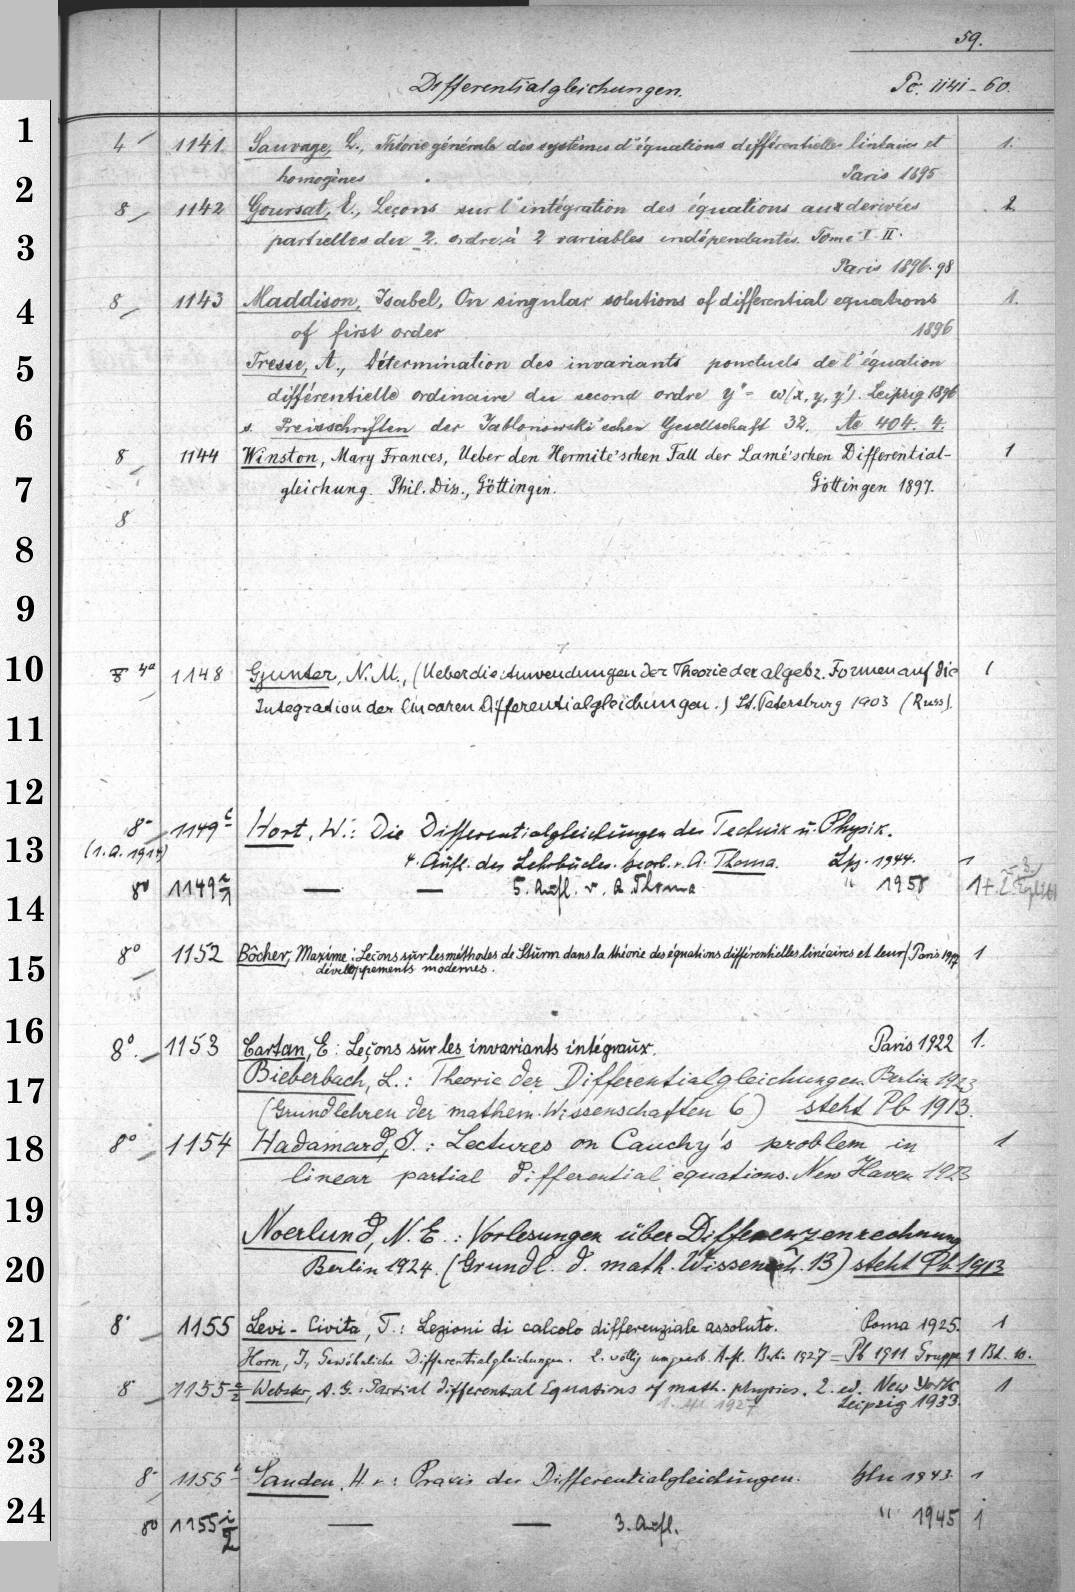 59.
Differentialgleichungen. Pc. 1141-60.
1
4 1141 Sauvage, L., Théorie générale des systèmes d'équations différentielles linéaires et 1.
homogènes Paris 1895
2
8 1142 Goursat, E., Leçons sur l'intégration des équations aux derivées 2.
3
partielles du 2. ordre à 2 variables indépendantes. Tome I. II.
Paris 1896-98
4
8 1143 Maddison, Isabel, On singular solutions of differential equations 1.
of first order 1896
5
Tresse, A., Détermination des invariants ponctuels de l'équation
différentielle ordinaire du second ordre y" = ω(x, y, y'). Leipzig 1896
6
s. Preisschriften der Jablonowski'schen Gesellschaft 32. Ac 404. 4.
8 1144 Winston, Mary Frances, Ueber den Hermite'schen Fall der Lamé'schen Differential- 1
7
gleichung. Phil. Diss., Göttingen. Göttingen 1897.
8
8
9
10
4° 1148 Gjunter, N. M., (Ueber die Anwendungen der Theorie der algebr. Formen auf die 1
Integration der linearen Differentialgleichungen.) St. Petersburg 1903 (Russ).
11
12
8° 1149 Hort, W.: Die Differentialgleichungen der Technik u. Physik.
13
(1. A. 1914) 4. Aufl. des Lehrbuches. bearb. v. A. Thoma. Lpz. 1944. 1
8° 1149 — — 5. Aufl. v. A. Thoma " 1950 1+
14
8° 1152 Bôcher, Maxime: Leçons sur les méthodes de Sturm dans la théorie des équations différentielles linéaires et leur Paris 1917 1
15
développements modernes.
16
8°. 1153 Cartan, E: Leçons sur les invariants intégraux. Paris 1922 1.
17
Bieberbach, L.: Theorie der Differentialgleichungen. Berlin 1923
(Grundlehren der mathem. Wissenschaften 6) steht Pb 1913.
18
8° 1154 Hadamard, J.: Lectures on Cauchy's problem in 1
linear partial differential equations. New Haven 1923
19
Noerlund, N. E.: Vorlesungen über Differenzenrechnung
20
Berlin 1924. (Grundl. d. math. Wissensch. 13) steht Pb 1913
21
8° 1155 Levi-Civita, T.: Lezioni di calcolo differenziale assoluto. Roma 1925. 1
Horn, J., Gewöhnliche Differentialgleichungen. 2. völlig umgearb. Aufl. Berlin 1927 = Pb 1911 Gruppe 1 Bd. 10.
22
8 1155 Webster, A. G.: Partial differential Equations of math. physics. 2. ed. New York 1
1. 1927 Leipzig 1933.
23
8° 1155 Sanden, H. v.: Praxis der Differentialgleichungen. Bln 1943. 1
24
8° 1155 — — 3. Aufl. " 1945 1